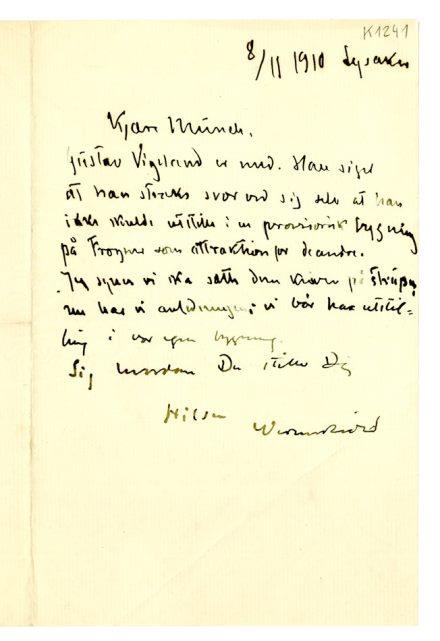 K1241
8/11 1910 Lysaker
Kjære Munch,
Gustav Vigeland er med. Han siger
at han straks svor ved sig selv at han
ikke skulde utstille i en provisorisk bygning
på Frogner som attraktion for de andre.
Jeg synes vi ska sætte den kniven på strupen
nu har vi anledningen; vi bør ha utstil-
ling i vor egen bygning.
Sig hvordan Du stiller Dig
Hilsen
Werenskiold